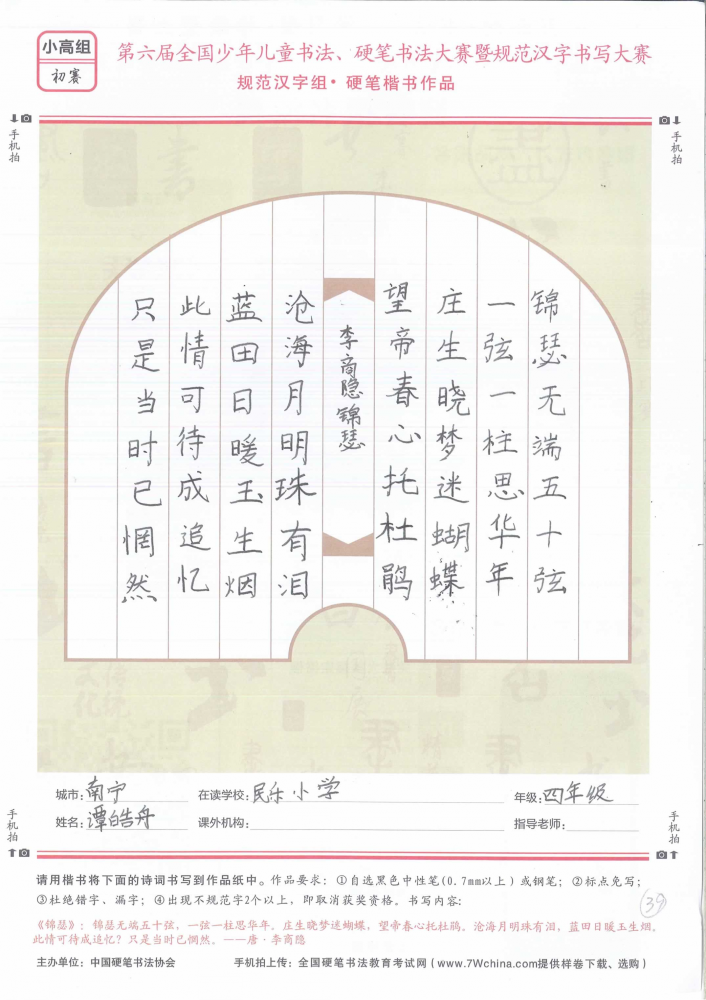 小高组
初赛
第六届全国少年儿童书法、硬笔书法大赛暨规范汉字书写大赛
规范汉字组·硬笔楷书作品
手机拍
手机拍
锦瑟无端五十弦
一弦一柱思华年
庄生晓梦迷蝴蝶
望帝春心托杜鹃
李商隐锦瑟
沧海月明珠有泪
蓝田日暖玉生烟
此情可待成追忆
只是当时已惘然
城市:南宁 在读学校:民乐小学 年级:四年级
姓名:谭皓舟 课外机构: 指导老师:
手机拍
手机拍
请用楷书将下面的诗词书写到作品纸中。作品要求:①自选黑色中性笔(0.7mm以上)或钢笔;②标点免写;
③杜绝错字、漏字;④出现不规范字2个以上,即取消获奖资格。书写内容:
39
《锦瑟》:锦瑟无端五十弦,一弦一柱思华年。庄生晓梦迷蝴蝶,望帝春心托杜鹃。沧海月明珠有泪,蓝田日暖玉生烟。
此情可待成追忆?只是当时已惘然。——唐·李商隐
主办单位:中国硬笔书法协会 手机拍上传:全国硬笔书法教育考试网(www.7Wchina.com提供样卷下载、选购)